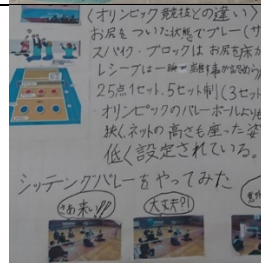 〈オリンピック競技との違い〉
お尻をついた状態でプレー(サ
スパイク・ブロックはお尻を床か
レシーブは一瞬
25点1セット、5セット制(3セット
・オリンピックのバレーボールより
狭く、ネットの高さも座った姿
低く設定されている。
シッティングバレーをやってみた
さあ来い!!!
大丈夫?!